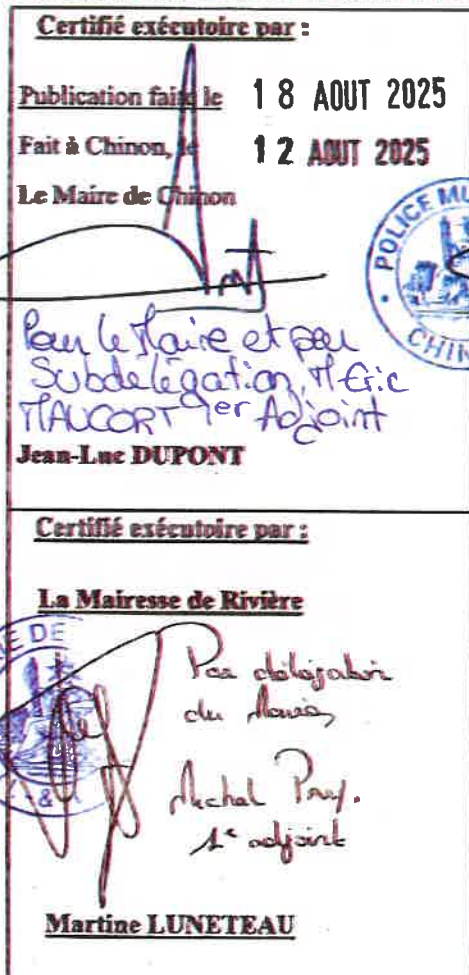 Certifié exécutoire par :
Publication faite le 18 AOUT 2025
Fait à Chinon, le 12 AOUT 2025
Le Maire de Chinon
POLICE MU
CHIN
Pour le Maire et par
Subdélégation, M Eric
MAUCORT 1er Adjoint
Jean-Luc DUPONT
Certifié exécutoire par :
La Mairesse de Rivière
E DE
Par délégation
du Maire,
Michel
1e adjoint
Martine LUNETEAU